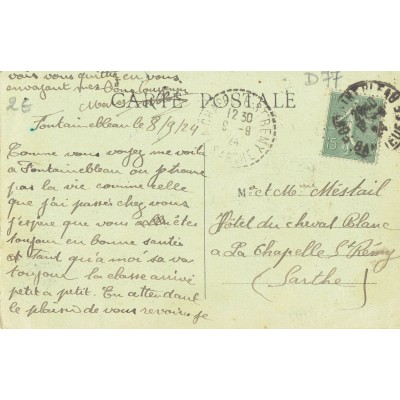 vais vous quitter en vous
envoyant mes bons
CARTE POSTALE
D77
2E
Fontainebleau le 8/9/24
Comme vous voyez me voilà
à Fontainebleau on trouve
pas la vie comme celle
que j'ai passés chez vous
j'espère que vous êtes
toujours en bonne santé
et tant qu'a moi sa va
toujour la classe arrivé
petit à petit. En attendant
le plaisir de vous revoir je
12 30
9 -9
24
Mr et Mme Mestail
Hôtel du cheval Blanc
a La Chapelle St Rémy
(Sarthe)